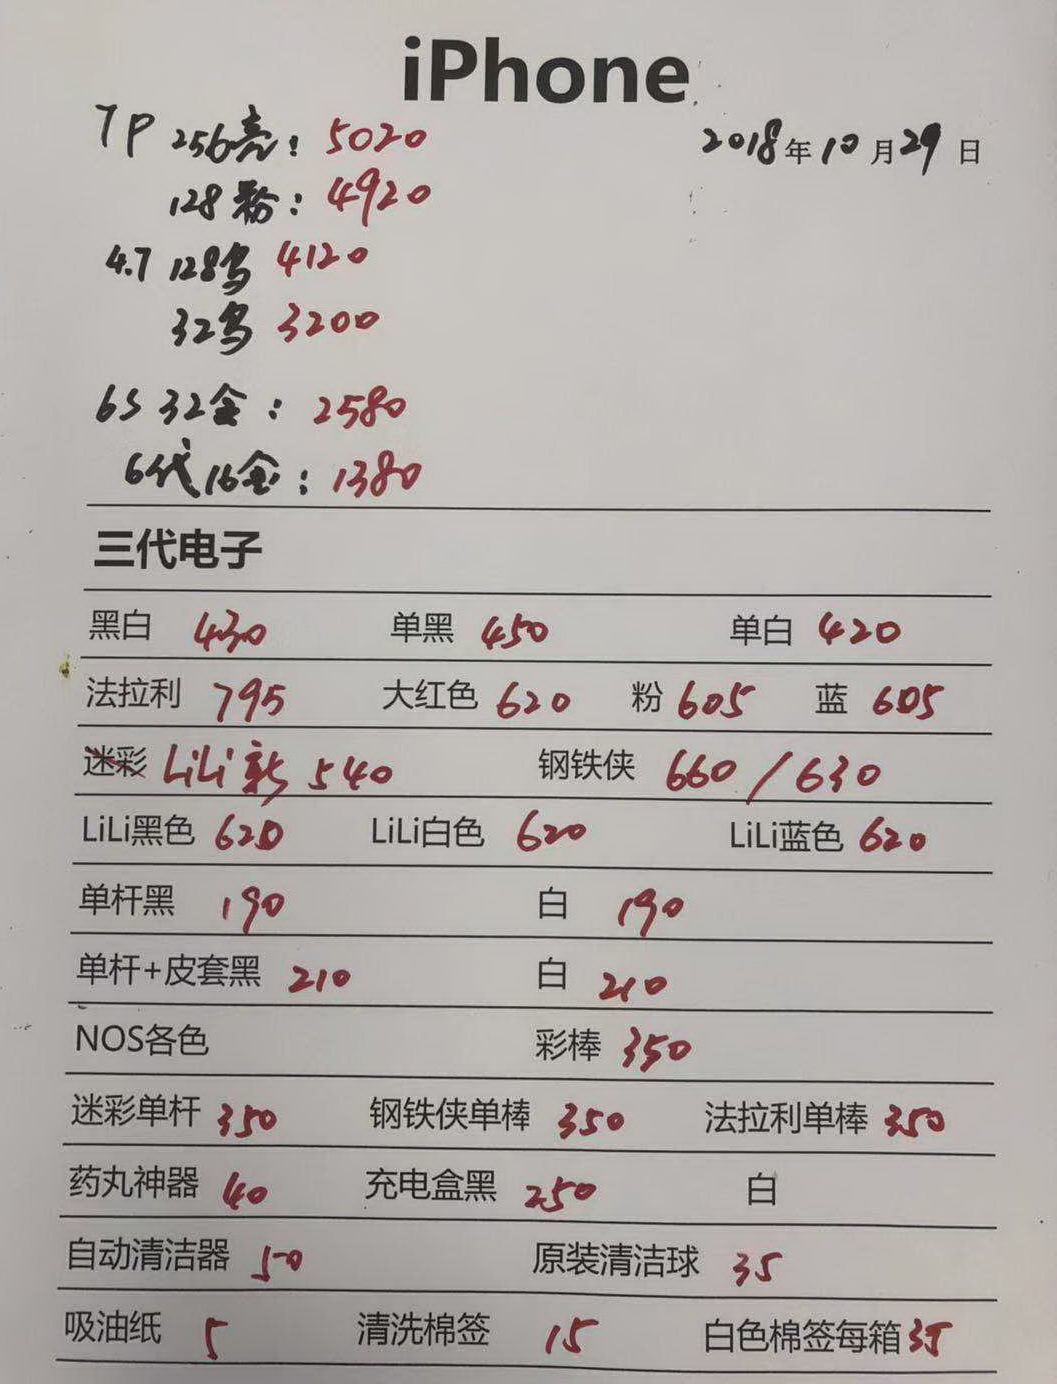 iPhone
2018年10月29日
7P 256亮: 5020
128粉: 4920
4.7 128乌 4120
32乌 3200
6S 32金: 2580
6代16金: 1380
三代电子
黑白 430 单黑 450 单白 420
法拉利 795 大红色 620 粉 605 蓝 605
迷彩 LiLi新 540 钢铁侠 660 / 630
LiLi黑色 620 LiLi白色 620 LiLi蓝色 620
单杆黑 190 白 190
单杆+皮套黑 210 白 210
NOS各色 彩棒 350
迷彩单杆 350 钢铁侠单棒 350 法拉利单棒 350
药丸神器 40 充电盒黑 250 白
自动清洁器 50 原装清洁球 35
吸油纸 5 清洗棉签 15 白色棉签每箱 35